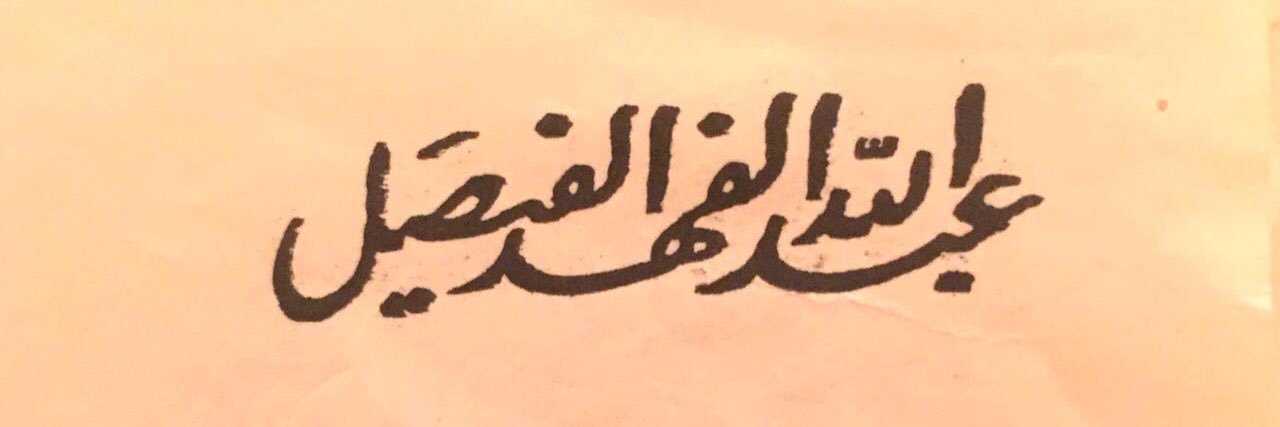 عبد الله الفهد الفيصل